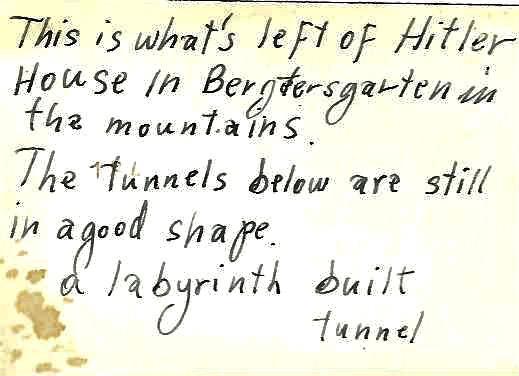 This is what's left of Hitler
House in Bergtersgarten in
the mountains.
The tunnels below are still
in a good shape.
a labyrinth built
tunnel